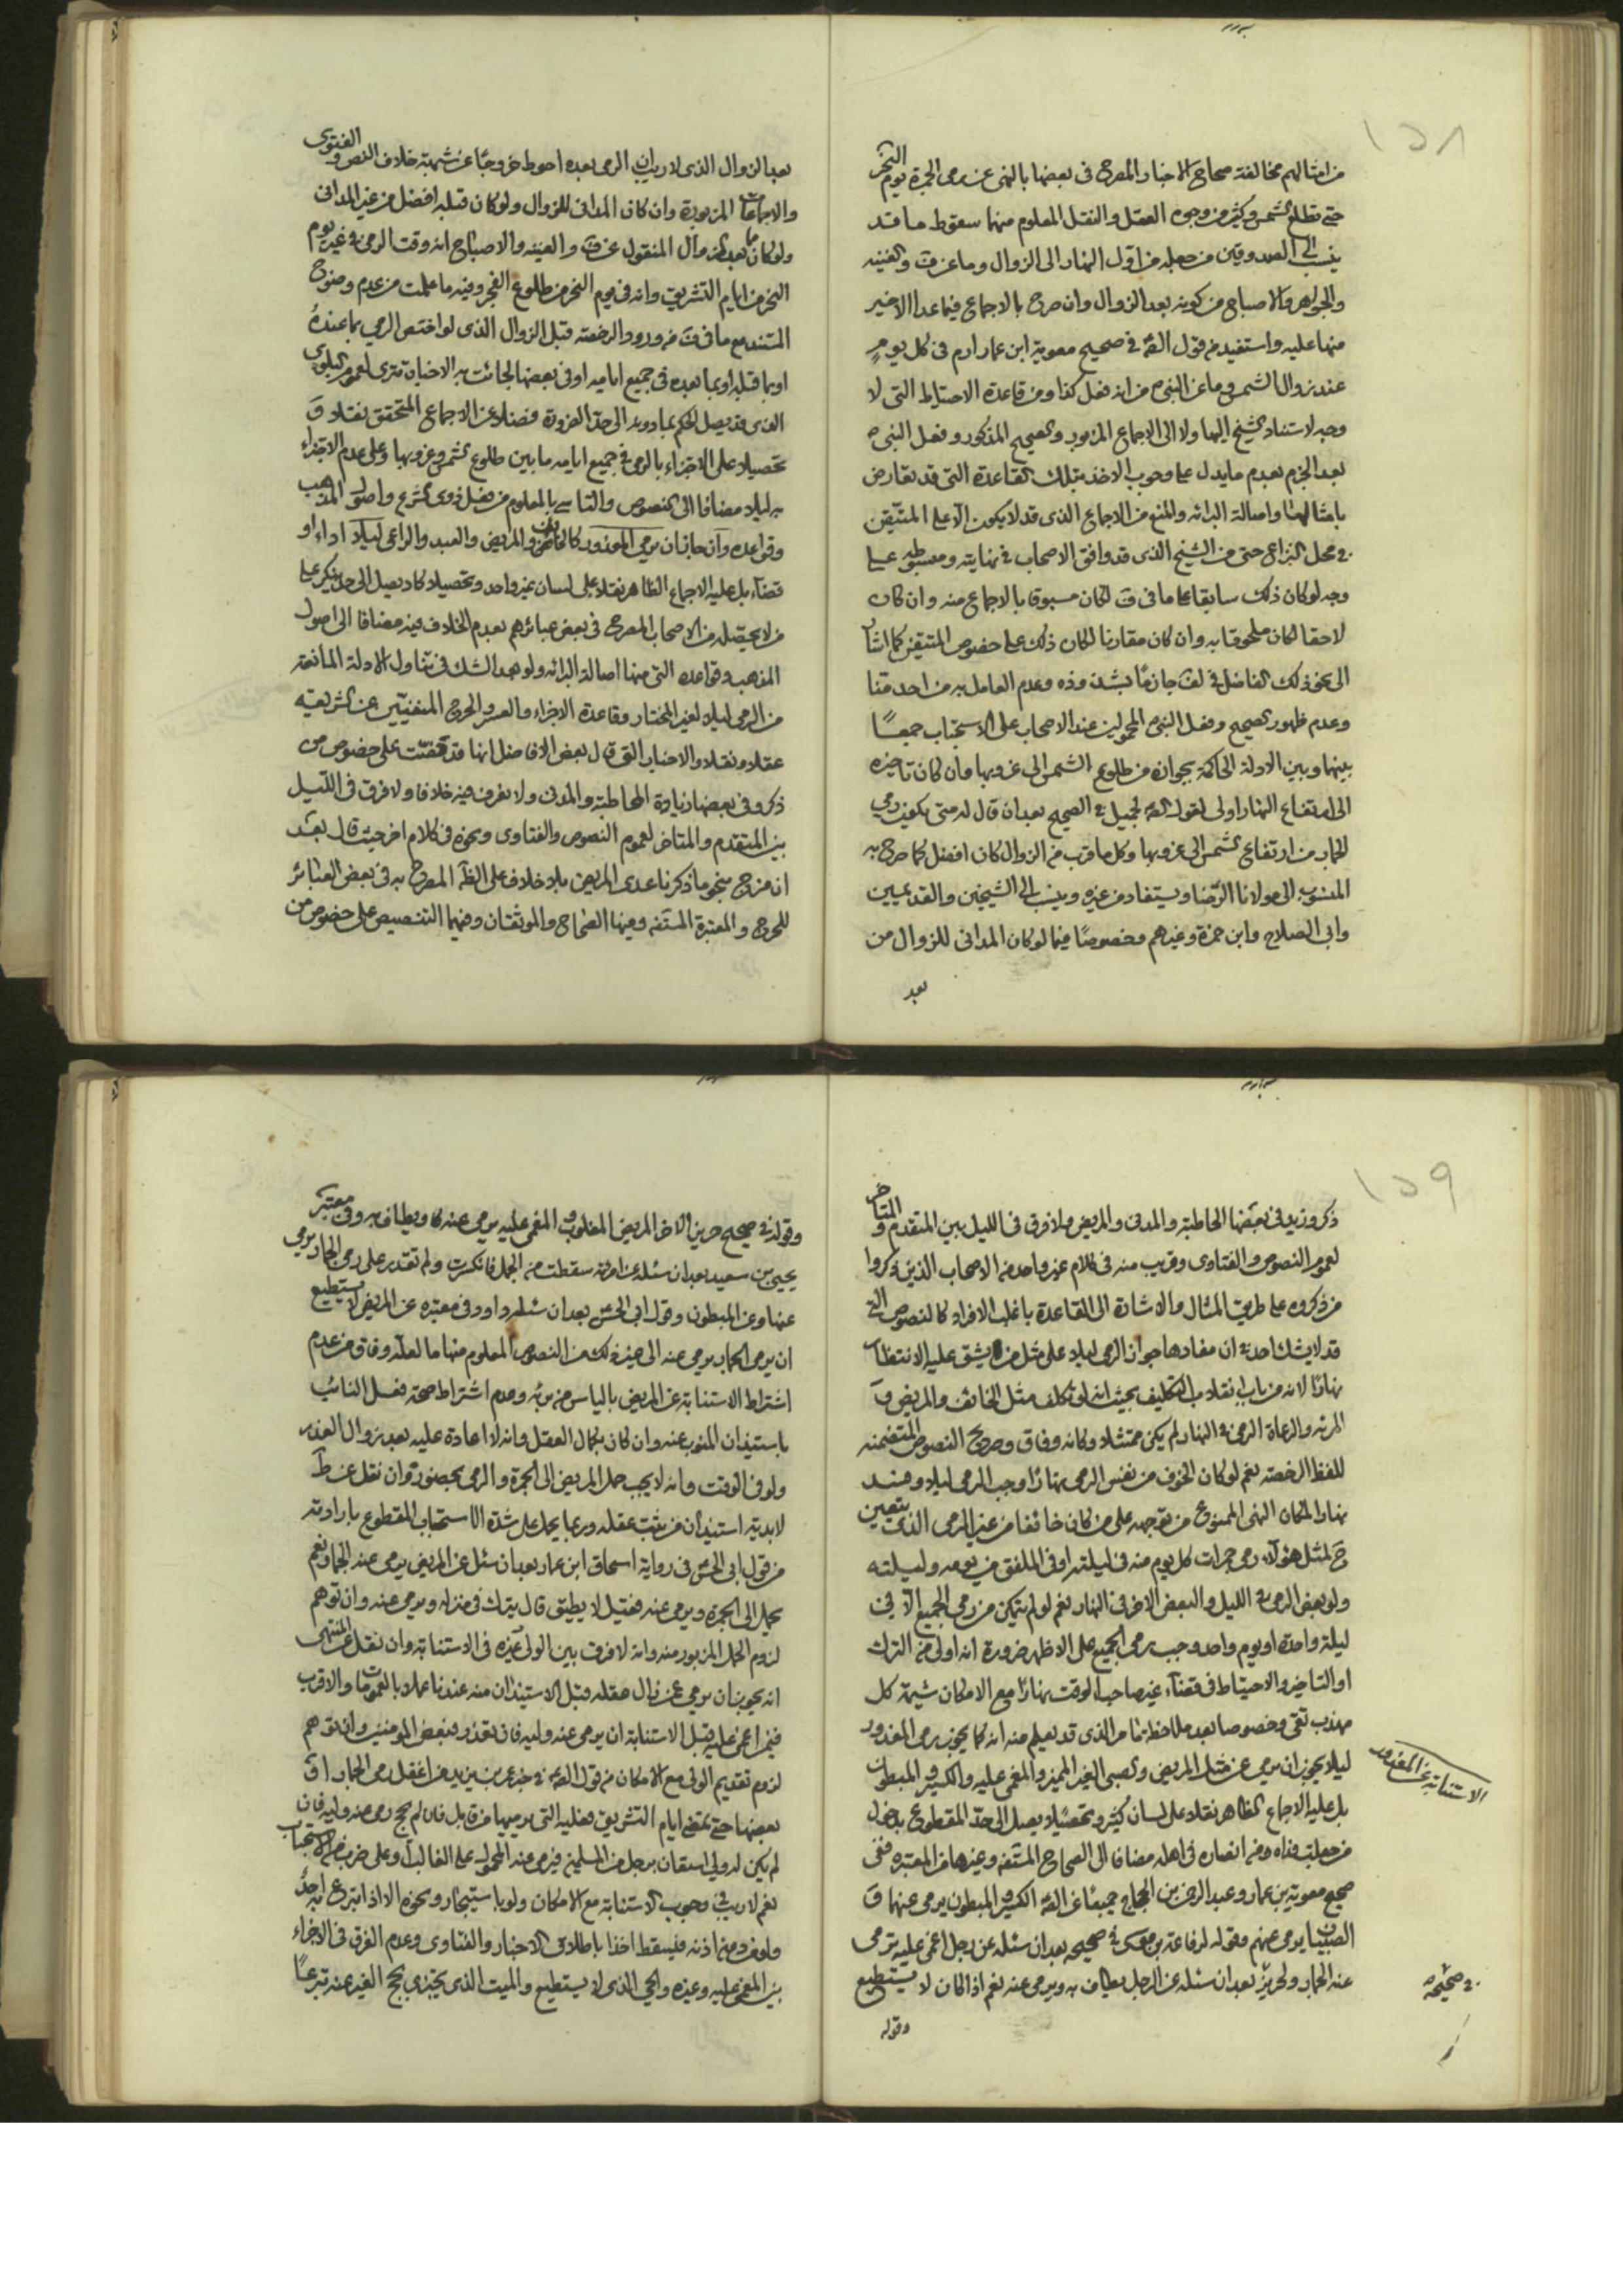 ١٥٨
من امثالهم مخالفة صحاح الاخبار المصرح فى بعضها بالنهى عن رمى الجمرة يوم النحر
حتى تطلع الشمس وكثير من وجوه العقل والنقل المعلوم منهما سقوط ما قد
ينسب الى الصدوقين من جعله من اول النهار الى الزوال وما عن ف والغنيه
والجواهر والاصباح من كونه بعد الزوال وان صرح بالاجماع فيما عدا الاخير
منها عليه واستفيد من قول الصّ فى صحيح معوية ابن عمار ارم فى كل يوم
عند زوال الشمس وما عن النبى ص من انه فعل كذا ومن قاعدة الاحتياط التى لا
وجه لاستناد الشيخ اليها ولا الى الاجماع المزبور والصحيح المذكور وفعل النبى ص
بعد الجزم بعدم ما يدل على وجوب الاخذ بتلك القاعدة التى قد تعارض
بامثالها واصالة البرائه والمنع من الاجماع الذى قد لا يكون الا على المتيقن
فى محل النزاع حتى من الشيخ الذى قد وافق الاصحاب فى نهايته ومبسوطه على
وجه لو كان ذلك سابقا على ما فى ف لكان مسبوقا بالاجماع منه وان كان
لاحقا لكان ملحوقا به وان كان مقارنا لكان ذلك على خصوص المتيقن كما اشار
الى نحو ذلك الفاضل فى لف جازمًا بشذوذه وعدم العامل به من احد منا
وعدم ظهور الصحيح وفعل النبى ص المحمولين عند الاصحاب على الاستحباب جمعًا
بينهما وبين الادلة الحاكمة بجوازه من طلوع الشمس الى غروبها وان كان تاخيره
الى ارتفاع النهار اولى لقول الصّ لجميل فى الصحيح بعد ان قال له متى يكون رمى
الجمار من ارتفاع الشمس الى غروبها وكل ما قرب من الزوال كان افضل كما صرح به
المنسوب الى مولانا الرضا ويستفاد من غيره وينسب الى الشيخين والقديميين
وابى الصلاح وابن حمزة وغيرهم وخصوصًا فيما لو كان المدانى للزوال من
بعد
بعد الزوال الذى لا ريب ان الرمى بعده احوط خروجًا عن شبهة خلاف النص والفتوى
والاجماعات المزبورة وان كان المدانى للزوال ولو كان قبله افضل من غير المدانى
ولو كان ما بعد الزوال المنقول عن ف والغنيه والاصباح انه وقت الرمى فى غير يوم
النحر من ايام التشريق وانه فى يوم النحر من طلوع الفجر وفيه ما علمت من عدم وضوح
المستند مع ما فى ف من ورود الرخصة قبل الزوال الذى لو اختص الرمى بما عنده
او بما قبله او بما بعده فى جميع ايامه او فى بعضها لجائت به الاخبار تترى لعموم البلوى
الذى قد يصل الحكم بما دونه الى حد الضرورة فضلا عن الاجماع المتحقق نقلا و
تحصيلا على الاجتزاء بالرمى فى جميع ايامه ما بين طلوع الشمس وغروبها وعلى عدم الاجتزاء
به ليلا مضافا الى النصوص والتاسى بالمعلوم من فعل ذوى الشرع واصول المذهب
وقواعده وان جاز ان يرمى المعذور كالخائف والمريض والعبد والراعى ليلا اداء او
قضاء بل عليه الاجماع الظاهر نقلا على لسان غير واحد وتحصيلا كاد يصل الى حد ينكر على
من لا يحصله من الاصحاب المصرح فى بعض عبائرهم بعدم الخلاف فيه مضافا الى اصول
المذهب وقواعده التى منها اصالة البرائه ولو بعد الشك فى تناول الادلة المانعة
من الرمى ليلا لغير المختار وقاعدة الاجزاء والعسر والحرج المنفيّين عن الشريعه
عقلا ونقلا والاخبار التى قال بعض الافاضل انها قد تحققت على خصوص من
ذكر وفى بعضها زيادة الحاطبة والمدنى ولا نعرف فيه خلافا ولا فرق فى الليل
بين المتقدم والمتاخر لعموم النصوص والفتاوى ونحوه فى كلام اخر حيث قال بعد
ان مزج بنحو ما ذكرنا عدى المريض بلا خلاف على الظّ المصرح به فى بعض العبائر
للحرج والمعتبرة المستفه ومنها الصحاح والموثقان وفيهما التنصيص على خصوص من
١٥٩
ذكر وزيد فى بعضها الحاطبة والمدنى والمريض ولا فرق فى الليل بين المتقدم والمتاخر
لعموم النصوص والفتاوى وقريب منه فى كلام غير واحد من الاصحاب الذين ذكروا
من ذكروه على طريق المثال والاشارة الى القاعدة باغلب الافراد كالنصوص التى
قد لا يشك احد فى ان مفادها جواز الرمى ليلا على مثل من يشق عليه الانتظار
نهارًا لا انه من باب انقلاب التكليف بحيث انه لو تكلف مثل الخائف والمريض و
المرئة والرعاة الرمى فى النهار لم يكن ممتثلا وكانه وفاق وصريح النصوص المتضمنه
للفظ الرخصة نعم لو كان الخوف من نفس الرمى نهارًا وجب الرمى ليلا وفسد
نهارا لمكان النهى الممنوع من توجهه على من كان خائفا من غير الرمى الذى يتعين
ح لمثل هؤلاء رمى جمرات كل يوم منه فى ليلته او فى الملفق من يومه وليلته
ولو بعض الرمى فى الليل والبعض الاخر فى النهار نعم لو لم يتمكن من رمى الجميع الا فى
ليلة واحدة او يوم واحد وجب رمى الجميع على الاظهر ضرورة انه اولى من الترك
او التاخير والاحتياط فى قضاء غير صاحب الوقت نهارًا مع الامكان شيمة كل
مهذب تقى وخصوصا بعد ملاحظة ما مر الذى قد يعلم منه انه كما يجوز رمى المعذور
ليلا يجوز ان يرمى عن مثل المريض والصبى الغير المميز والمغمى عليه والكسير والمبطون
بل عليه الاجماع الظاهر نقلا على لسان كثير وتحصيلا يصل الى حد المقطوع بدخول
من جعلت فداه ومن انصاره فى اهله مضافا الى الصحاح المستفه وغيرها من المعتبره ففى
صحيح معوية بن عمار وعبد الرحمن بن الحجاج جميعًا عن الصّ الكسير والمبطون يرمى عنهما و
الصبيان يرمى عنهم وقوله لرفاعة بن موسى فى صحيحه بعد ان سئله عن رجل اغمى عليه ترمى
عنه الجمار ولحريز بعد ان سئله عن الرجل يطاف به ويرمى عنه نعم اذا كان لا يستطيع
وقوله
الاستنابة عن المعذور
فى صحيحه
وقوله فى صحيح حريز الاخر المريض المغلوب والمغمى عليه يرمى عنه ويطاف به وفى معتبر
يحيى بن سعيد بعد ان سئله عن امرئة سقطت من الجمل فانكسرت ولم تقدر على رمى الجمار يرمى
عنها وعن المبطون وقول ابى الحسن بعد ان سئله داود فى معتبره عن المريض لا يستطيع
ان يرمى الجمار يرمى عنه الى غير ذلك من النصوص المعلوم منها ما لعله وفاق من عدم
اشتراط الاستنابة عن المريض بالياس من برئه وعدم اشتراط صحة فعل النائب
باستيذان المنوب عنه وان كان بكمال العقل وانه لا اعادة عليه بعد زوال العذر
ولو فى الوقت وانه لا يجب حمل المريض الى الجمرة والرمى بحضوره وان نقل عن ط
لابدية استيذان من يثبت عقله وربما يحمل على شدة الاستحباب المقطوع بارادته
من قول ابى الحسن فى رواية اسحاق ابن عمار بعد ان سئل عن المريض يرمى عنه الجمار نعم
يحمل الى الجمرة ويرمى عنه فقيل لا يطيق قال يترك فى منزله ويرمى عنه وان توهم
لزوم الحمل المزبور منه وانه لا فرق بين الولى وغيره فى الاستنابة وان نقل عن المنتهى
انه يجوز ان يرمى عمن زال عقله قبل الاستيذان منه عندنا عملا بالعمومات والاقرب
فيمن اغمى عليه قبل الاستنابة ان يرمى عنه وليه فان تعذر فبعض المؤمنين وان توهم
لزوم تقديم الولى مع الامكان من قول الصّ فى خبر عمر بن يزيد من اغفل رمى الجمار او
بعضها حتى تمضى ايام التشريق فعليه ان يرميها من قابل فان لم يحج رمى عنه وليه فان
لم يكن له ولى استعان برجل من المسلمين فيرمى عنه المحمول على الغالب او على ضرب من الاستحباب
نعم لا ريب فى وجوب الاستنابة مع الامكان ولو باستيجار ونحوه الا اذا تبرع به احدٌ
ولو بدون اذنه فيسقط اخذا باطلاق الاخبار والفتاوى وعدم الفرق فى الاجزاء
بين المغمى عليه وغيره والحى الذى لا يستطيع والميت الذى يجتزى بحج الغير عنه تبرعًا